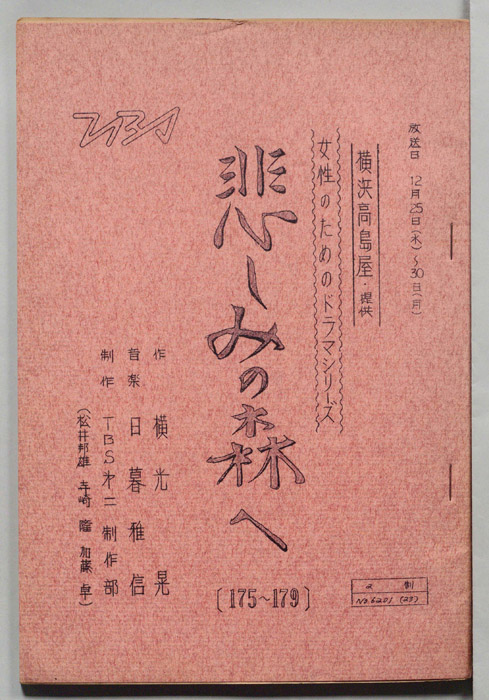 放送日 12月25日(水)～30日(月)
横浜高島屋・提供
女性のためのドラマシリーズ
悲しみの森へ
作 横光 晃
音楽 日暮雅信
制作 TBS第二制作部
(松井邦雄 寺崎 隆 加藤 卓)
[175～179]
TBS
2 制
No.6201 (23)